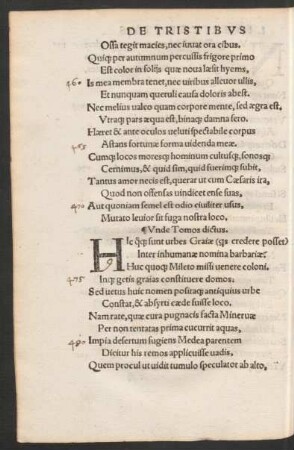 DE TRISTIBVS
Ossa tegit macies, nec iuuat ora cibus.
Quiq; per autumnum percussis frigore primo
Est color in folijs quæ noua læsit hyems,
460 Is mea membra tenet, nec uiribus alleuor ullis,
Et nunquam queruli causa doloris abest.
Nec melius ualeo quam corpore mente, sed ægra est,
Vtraq; pars æqua est, binaq; damna fero.
Hæret & ante oculos ueluti spectabile corpus
465 Astans fortunæ forma uidenda meæ.
Cumq; locos moresq; hominum cultusq; sonosq;
Cernimus, & quid sim, quid fuerimq; subit,
Tantus amor necis est, querar ut cum Cæsaris ira,
Quod non offensas uindicet ense suas,
470 Aut quoniam semel est odio ciuiliter usus,
Mutato leuior sit fuga nostra loco.
¶Vnde Tomos dictus.
HIc q̃q; sunt urbes Graiæ (q̃s credere posset)
9 Inter inhumanæ nomina barbariæ?
Huc quoq; Mileto missi uenere coloni.
475 Inq; getis graias constituere domos.
Sed uetus huic nomen positaq; antiquius urbe
Constat, & absyrti cæde fuisse loco.
Nam rate, quæ cura pugnacis facta Mineruæ
Per non tentatas prima cucurrit aquas,
480 Impia desertum fugiens Medea parentem
Dicitur his remos applicuisse uadis,
Quem procul ut uidit tumulo speculator ab alto,